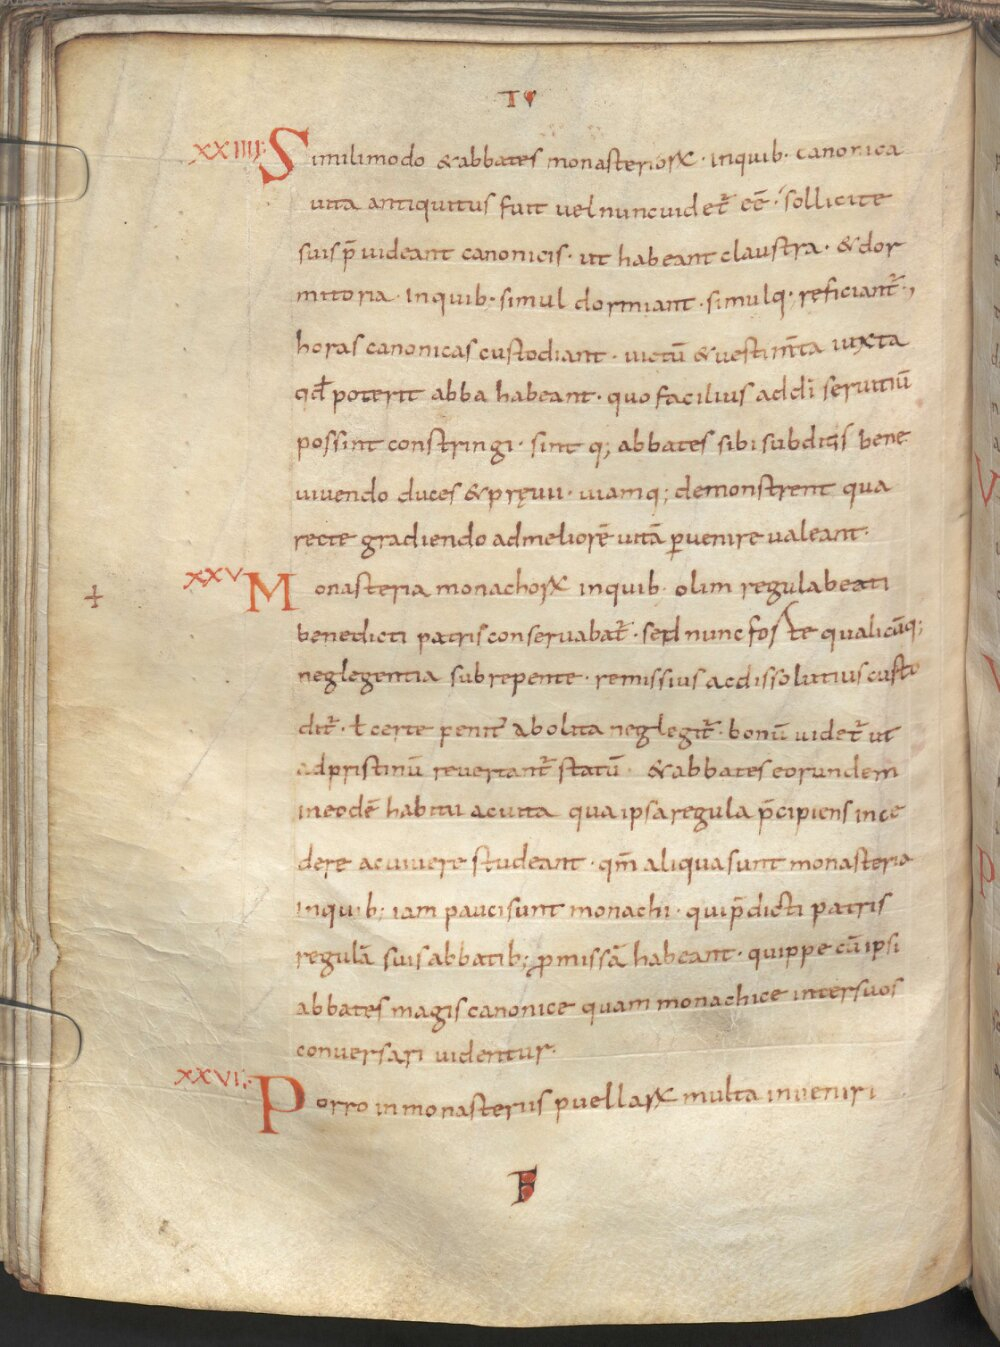 IV
XXIIII: Similimodo &abbates monasteriorꝝ · inquib· canonica
uita antiquitus fuit uelnuncuidet̄ eē · sollicite
suis p̄uideant canonicis · ut habeant claustra · &dor
mitoria · Inquib· simul dormiant · simulq· reficiant̄ ·,
horas canonicas custodiant · uictū &uestim̄ta iuxta
qđ poterit abba habeant · quo facilius addī seruitiū
possint constringi · sint q; abbates sibi subditis bene
uiuendo duces &pręuii · uiamq; demonstrent qua
recte gradiendo admeliorē uitā ꝑuenire ualeant ·
XXV Monasteria monachorꝝ inquib· olim regula beati
benedicti patris conseruabat̄ · sed nunc fos te qualicūq;
neglegentia subrepente · remissius acdissolutius custo
dit̄ · ł certe penit̄ abolita neglegit̄ · bonū uidet̄ ut
adpristinū reuertant̄ statū · &abbates eorundem
ineodē habitu acuita qua ipsa regula p̄cipiens ince
dere acuiuere studeant · qm̄ aliqua sunt monasteria
inquib; iam pauci sunt monachi · quip̄dicti patris
regulā suis abbatib; ꝓmissā habeant · quippe cū ipsi
abbates magis canonice quam monachice inter suos
conuersari uidentur ·
XXVI: Porro in monasteriis puellarꝝ multa inueniri
F